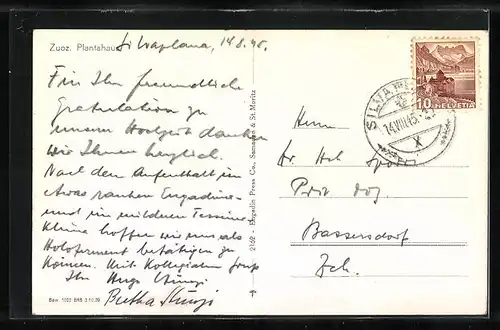 Zuoz. Plantahaus
Silvaplana, 14.8.45.
Für Ihre freundliche
Gratulation zu
unserer Hochzeit danken
wir Ihnen herzlich.
Nach dem Aufenthalt im
etwas rauhen Engadiner-
und im milderen Tessiner-
Klima hoffen wir uns als
betätigen zu
können. Mit Kollegialem Gruss
Ihr Hugo
Bertha
Bew. 1022 BRB 3.10.39
9162 - Engadin Press Co., Samaden & St. Moritz
10 HELVETIA
SILVAPLANA
14.VIII.45
X
Herrn
Dr Hch
Priv Doz.
Bassersdorf
Zch.